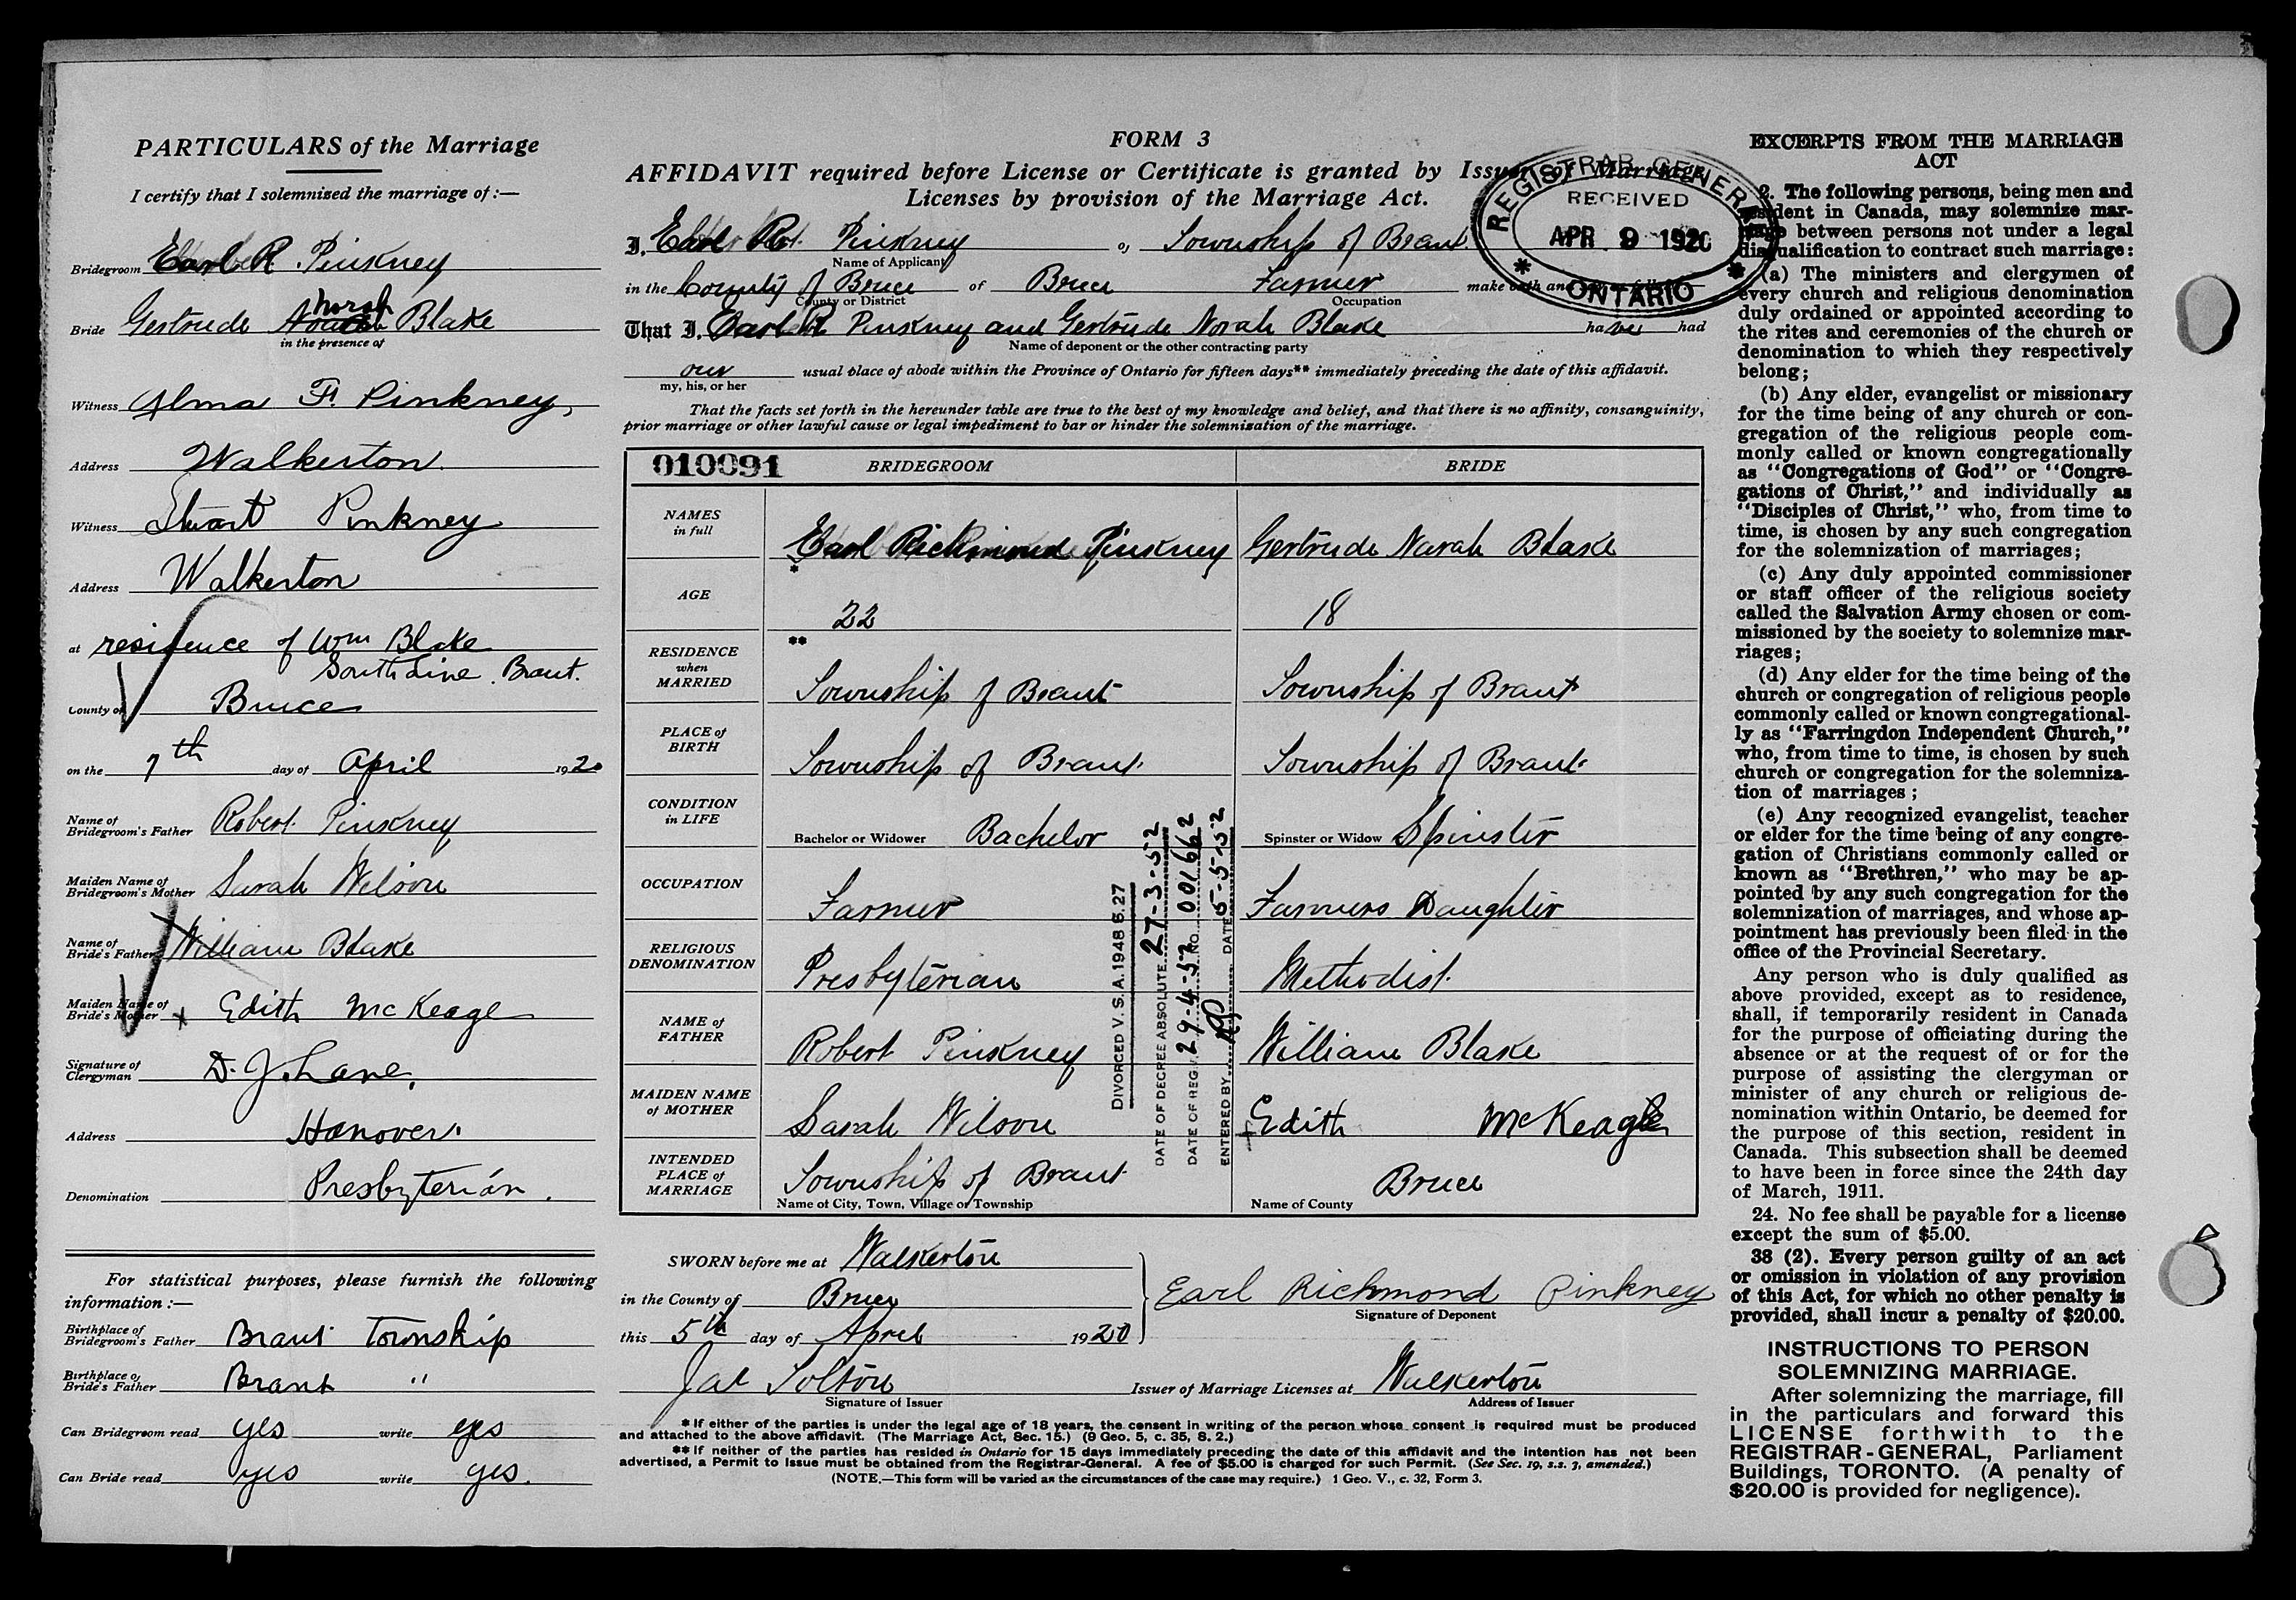 PARTICULARS of the Marriage
I certify that I solemnized the marriage of:—
Bridegroom Earl R Pinkney
Bride Gertrude Norah Blake
in the presence of
Witness Alma F. Pinkney,
Address Walkerton.
Witness Stuart Pinkney
Address Walkerton
at residence of Wm Blake
South Line. Brant.
County of Bruce
on the 7th day of April 1920
Name of
Bridegroom's Father Robert Pinkney
Maiden Name of
Bridegroom's Mother Sarah Wilson
Name of
Bride's Father William Blake
Maiden Name of
Bride's Mother x Edith McKeage
Signature of
Clergyman D. J. Lane.
Address Hanover.
Denomination Presbyterian.
For statistical purposes, please furnish the following
information:—
Birthplace of
Bridegroom's Father Brant Township
Birthplace of
Bride's Father Brant "
Can Bridegroom read yes write yes
Can Bride read yes write yes.
FORM 3
AFFIDAVIT required before License or Certificate is granted by Issuer of Marriage
Licenses by provision of the Marriage Act.
REGISTRAR GENERAL
RECEIVED
APR 9 1920
ONTARIO
I, Earl R. Pinkney of Township of Brant
Name of Applicant
in the County of Bruce of Bruce Farmer make oath and
County or District Occupation
That I, Earl R Pinkney and Gertrude Norah Blake have had
Name of deponent or the other contracting party
our usual place of abode within the Province of Ontario for fifteen days** immediately preceding the date of this affidavit.
my, his, or her
That the facts set forth in the hereunder table are true to the best of my knowledge and belief, and that there is no affinity, consanguinity,
prior marriage or other lawful cause or legal impediment to bar or hinder the solemnization of the marriage.
010091 BRIDEGROOM BRIDE
NAMES
in full Earl Richmond Pinkney Gertrude Norah Blake
*
AGE 22 18
**
RESIDENCE
when
MARRIED Township of Brant Township of Brant
PLACE of
BIRTH Township of Brant Township of Brant
CONDITION
in LIFE Bachelor or Widower Bachelor Spinster or Widow Spinster
OCCUPATION Farmer Farmers Daughter
RELIGIOUS
DENOMINATION Presbyterian Methodist
NAME of
FATHER Robert Pinkney William Blake
MAIDEN NAME
of MOTHER Sarah Wilson Edith McKeage
INTENDED
PLACE of
MARRIAGE Township of Brant Bruce
Name of City, Town, Village or Township Name of County
DIVORCED V. S. A. 1948 S. 27
DATE OF DECREE ABSOLUTE 27-3-52
DATE OF REG. 29-4-52 NO. 001662
ENTERED BY DATE 5-5-52
SWORN before me at Walkerton
in the County of Bruce
this 5th day of April 1920
Earl Richmond Pinkney
Signature of Deponent
Jas Tolton Issuer of Marriage Licenses at Walkerton
Signature of Issuer Address of Issuer
* If either of the parties is under the legal age of 18 years, the consent in writing of the person whose consent is required must be produced
and attached to the above affidavit. (The Marriage Act, Sec. 15.) (9 Geo. 5, c. 35, S. 2.)
** If neither of the parties has resided in Ontario for 15 days immediately preceding the date of this affidavit and the intention has not been
advertised, a Permit to Issue must be obtained from the Registrar-General. A fee of $5.00 is charged for such Permit. (See Sec. 19, s.s. 7, amended.)
(NOTE.—This form will be varied as the circumstances of the case may require.) 1 Geo. V., c. 32, Form 3.
EXCERPTS FROM THE MARRIAGE
ACT
2. The following persons, being men and
resident in Canada, may solemnize mar-
riage between persons not under a legal
disqualification to contract such marriage:
(a) The ministers and clergymen of
every church and religious denomination
duly ordained or appointed according to
the rites and ceremonies of the church or
denomination to which they respectively
belong;
(b) Any elder, evangelist or missionary
for the time being of any church or con-
gregation of the religious people com-
monly called or known congregationally
as "Congregations of God" or "Congre-
gations of Christ," and individually as
"Disciples of Christ," who, from time to
time, is chosen by any such congregation
for the solemnization of marriages;
(c) Any duly appointed commissioner
or staff officer of the religious society
called the Salvation Army chosen or com-
missioned by the society to solemnize mar-
riages;
(d) Any elder for the time being of the
church or congregation of religious people
commonly called or known congregational-
ly as "Farringdon Independent Church,"
who, from time to time, is chosen by such
church or congregation for the solemniza-
tion of marriages;
(e) Any recognized evangelist, teacher
or elder for the time being of any congre-
gation of Christians commonly called or
known as "Brethren," who may be ap-
pointed by any such congregation for the
solemnization of marriages, and whose ap-
pointment has previously been filed in the
office of the Provincial Secretary.
Any person who is duly qualified as
above provided, except as to residence,
shall, if temporarily resident in Canada
for the purpose of officiating during the
absence or at the request of or for the
purpose of assisting the clergyman or
minister of any church or religious de-
nomination within Ontario, be deemed for
the purpose of this section, resident in
Canada. This subsection shall be deemed
to have been in force since the 24th day
of March, 1911.
24. No fee shall be payable for a license
except the sum of $5.00.
38 (2). Every person guilty of an act
or omission in violation of any provision
of this Act, for which no other penalty is
provided, shall incur a penalty of $20.00.
INSTRUCTIONS TO PERSON
SOLEMNIZING MARRIAGE.
After solemnizing the marriage, fill
in the particulars and forward this
LICENSE forthwith to the
REGISTRAR-GENERAL, Parliament
Buildings, TORONTO. (A penalty of
$20.00 is provided for negligence).